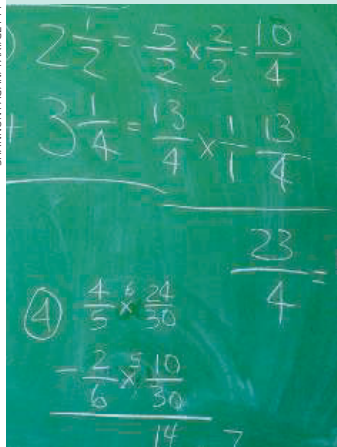 ) 2 1/2 = 5/2 x 2/2 = 10/4
+ 3 1/4 = 13/4 x 1/1 13/4
23/4 =
④ 4/5 x 6 24/30
- 2/6 x 5 10/30
14 7